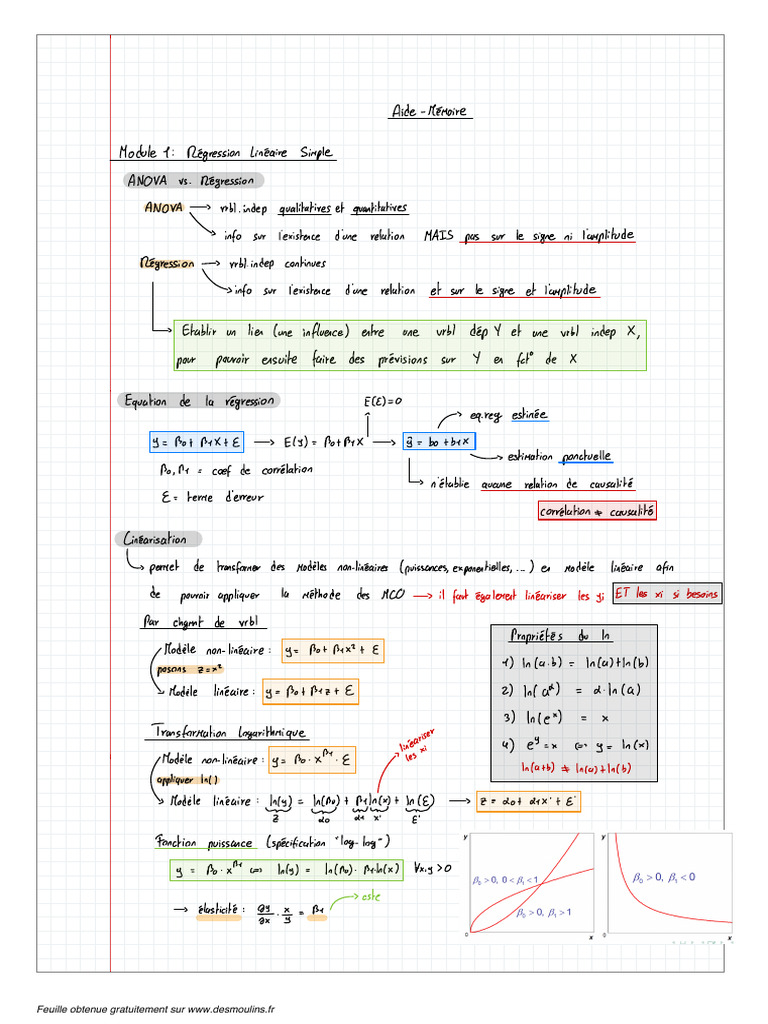 Aide-Mémoire
Module 1: Régression Linéaire Simple
ANOVA vs. Régression
ANOVA → vrbl.indep qualitatives et quantitatives
info sur l'existence d'une relation MAIS pas sur le signe ni l'amplitude
Régression → vrbl.indep continues
info sur l'existence d'une relation et sur le signe et l'amplitude
Etablir un lien (une influence) entre une vrbl dép Y et une vrbl indep X,
pour pouvoir ensuite faire des prévisions sur Y en fct° de X
Equation de la régression
E(ε)=0
eq.reg estinée
y = β0 + β1X + ε → E(y) = β0+β1X → ŷ = b0 + b1X
estimation ponctuelle
β0, β1 = coef de corrélation
n'établie aucune relation de causalité
ε = terme d'erreur
corrélation ≠ causalité
Linéarisation
permet de transformer des modèles non-linéaires (puissances, exponentielles, ...) en modèle linéaire afin
de pouvoir appliquer la méthode des MCO → il faut également linéariser les yi ET les xi si besoins
Par chgmt de vrbl
Modèle non-linéaire : y = β0 + β1x² + ε
posons z = x²
Modèle linéaire : y = β0 + β1z + ε
Propriétés du ln
1) ln(a.b) = ln(a)+ln(b)
2) ln(a^α) = α.ln(a)
3) ln(e^x) = x
4) e^y = x ⇔ y = ln(x)
ln(a+b) ≠ ln(a)+ln(b)
Transformation logarithmique
linéariser
les xi
Modèle non-linéaire : y = β0 · x^β1 · ε
appliquer ln()
Modèle linéaire : ln(y) = ln(β0) + β1 ln(x) + ln(ε) → z = α0 + α1x' + ε'
z α0 α1 x' ε'
Fonction puissance (spécification "log-log")
y = β0 · x^β1 ⇔ ln(y) = ln(β0) · β1·ln(x) ∀x,y > 0
→ élasticité : ∂y/∂x · x/y = β1
→ cste
y
β0 > 0, 0 < β1 < 1
β0 > 0, β1 > 1
0
x
y
β0 > 0, β1 < 0
0
x
Feuille obtenue gratuitement sur www.desmoulins.fr